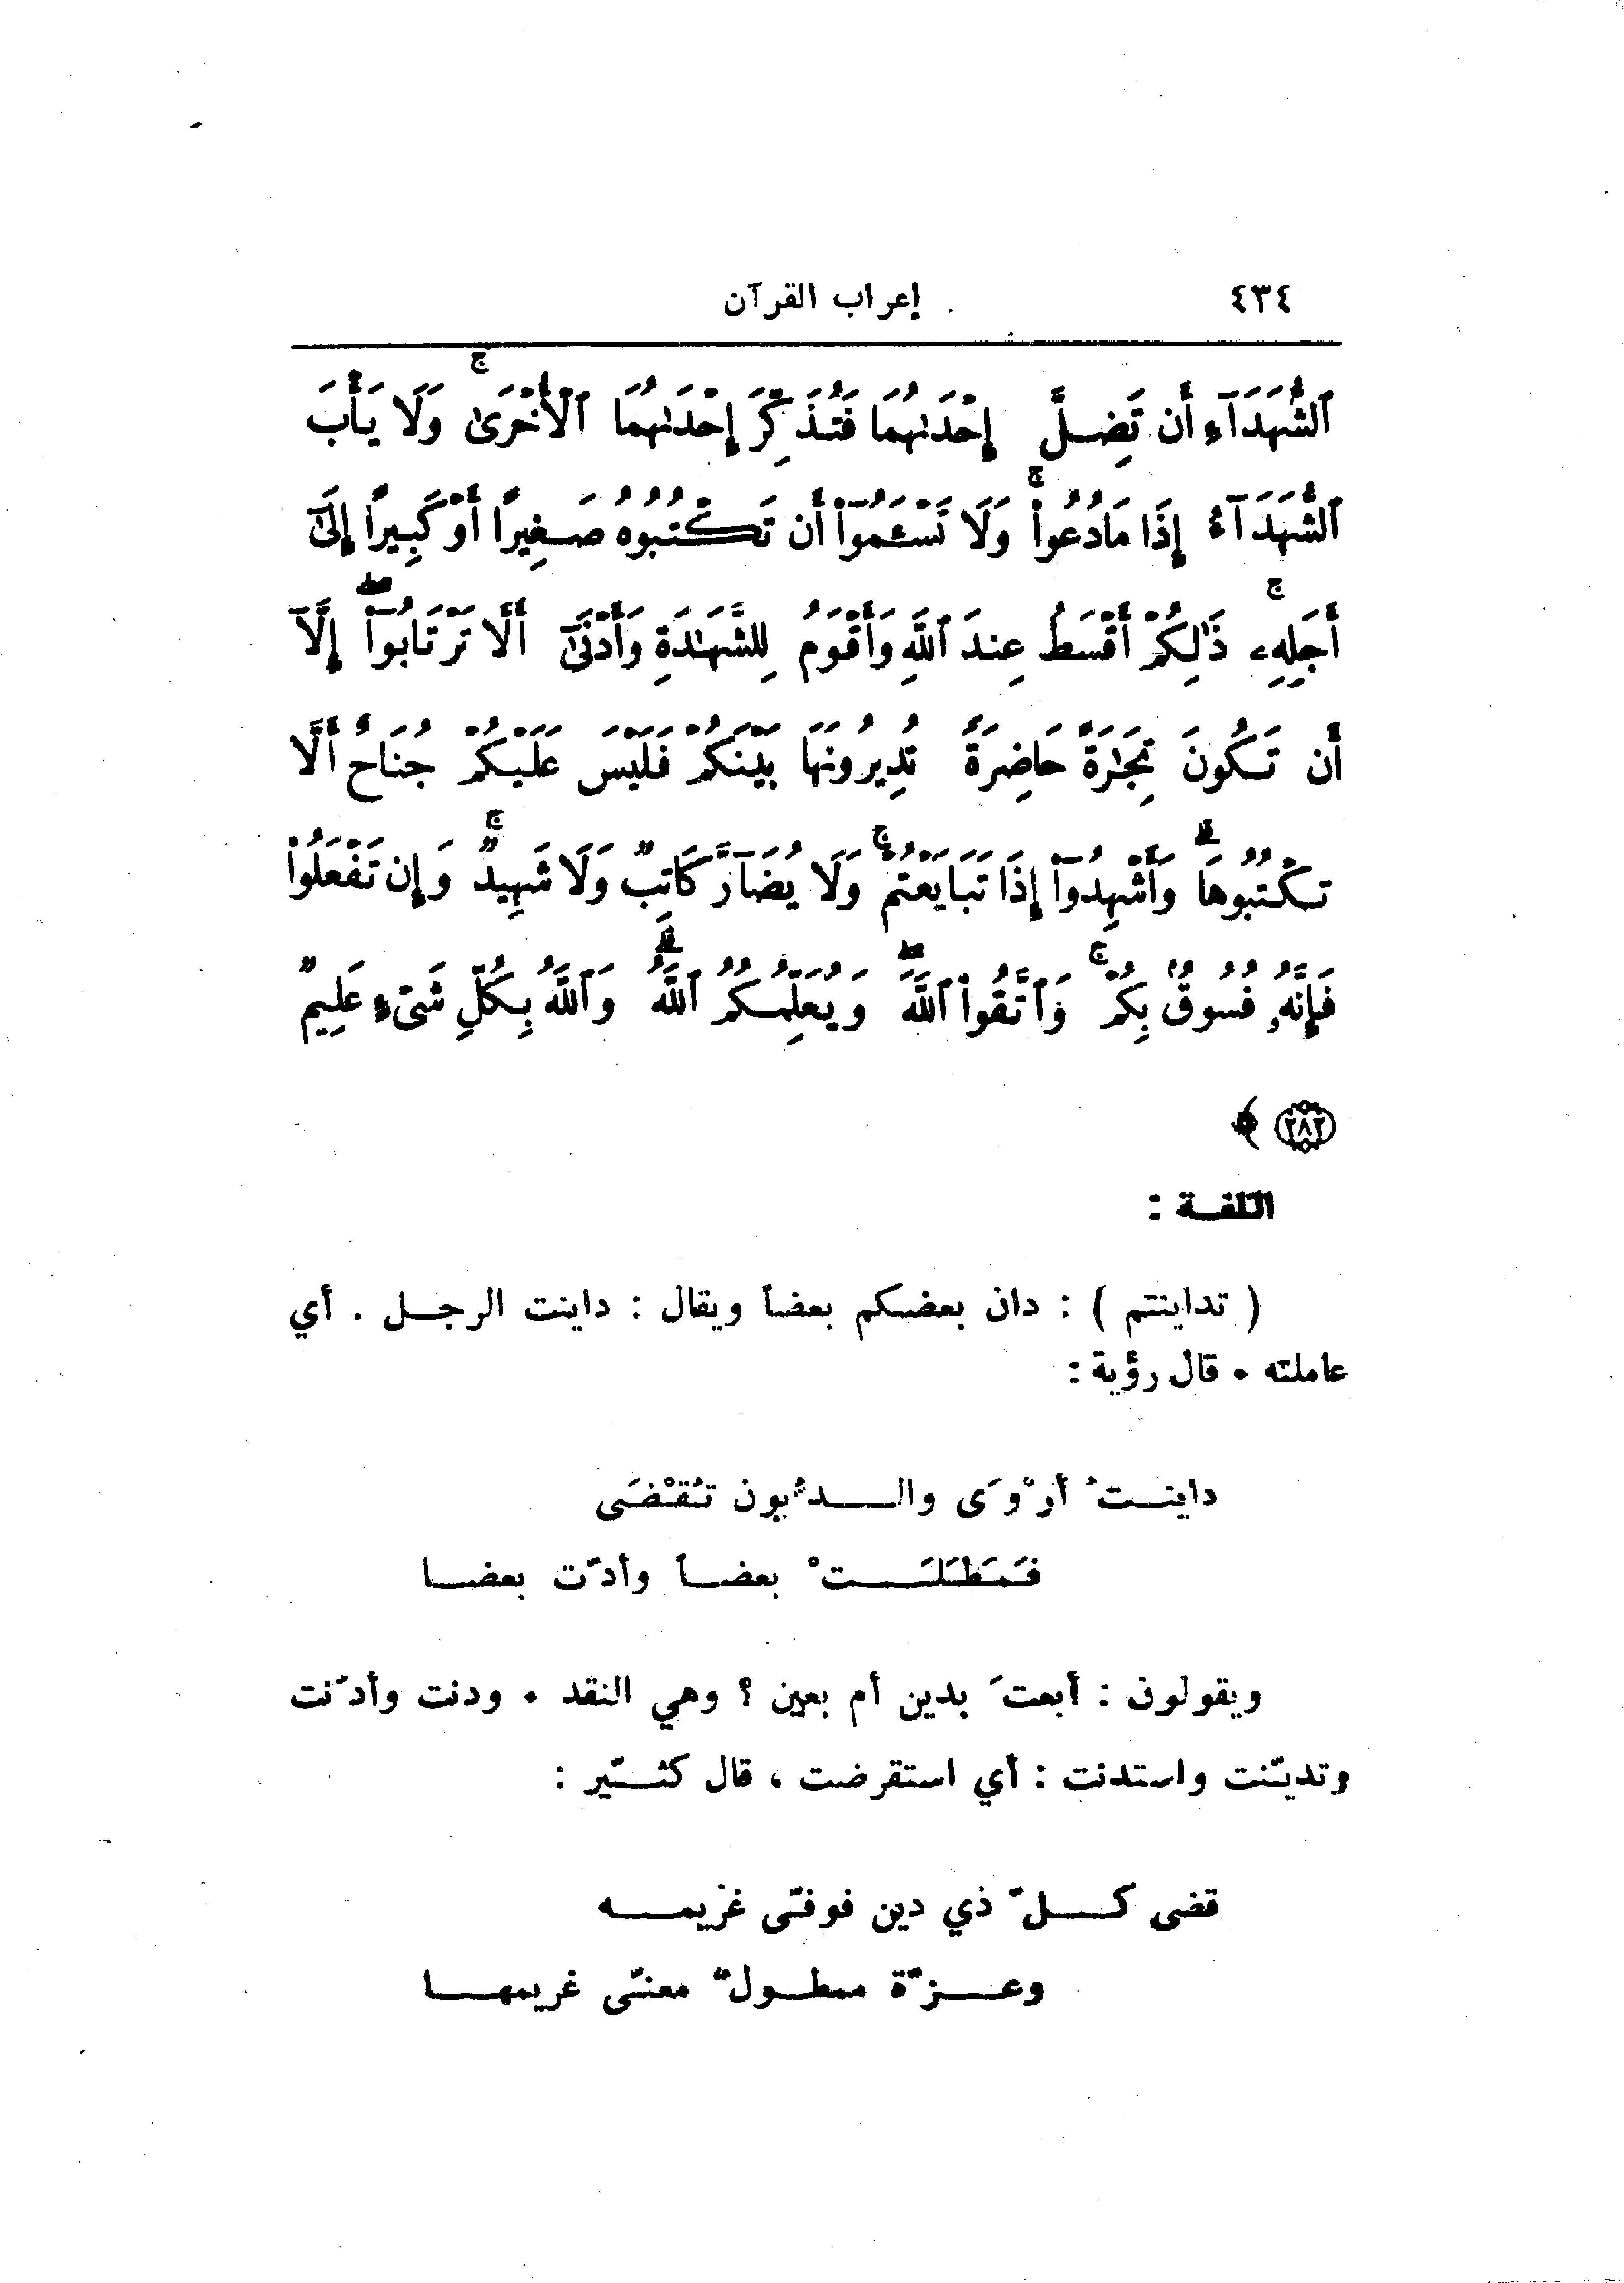 ٤٣٤ إعراب القرآن
ٱلشُّهَدَآءِ أَن تَضِلَّ إِحْدَىٰهُمَا فَتُذَكِّرَ إِحْدَىٰهُمَا ٱلْأُخْرَىٰ ۚ وَلَا يَأْبَ
ٱلشُّهَدَآءُ إِذَا مَا دُعُوا۟ ۚ وَلَا تَسْـَٔمُوٓا۟ أَن تَكْتُبُوهُ صَغِيرًا أَوْ كَبِيرًا إِلَىٰٓ
أَجَلِهِۦ ۚ ذَٰلِكُمْ أَقْسَطُ عِندَ ٱللَّهِ وَأَقْوَمُ لِلشَّهَـٰدَةِ وَأَدْنَىٰٓ أَلَّا تَرْتَابُوٓا۟ ۖ إِلَّآ
أَن تَكُونَ تِجَـٰرَةً حَاضِرَةً تُدِيرُونَهَا بَيْنَكُمْ فَلَيْسَ عَلَيْكُمْ جُنَاحٌ أَلَّا
تَكْتُبُوهَا ۗ وَأَشْهِدُوٓا۟ إِذَا تَبَايَعْتُمْ ۚ وَلَا يُضَآرَّ كَاتِبٌ وَلَا شَهِيدٌ ۚ وَإِن تَفْعَلُوا۟
فَإِنَّهُۥ فُسُوقٌۢ بِكُمْ ۚ وَٱتَّقُوا۟ ٱللَّهَ ۖ وَيُعَلِّمُكُمُ ٱللَّهُ ۗ وَٱللَّهُ بِكُلِّ شَىْءٍ عَلِيمٌ
٢٨٢ ﴾
اللغـة :
( تداينتم ) : دان بعضكم بعضاً ويقال : داينت الرجـل . أي
عاملته . قال رؤبة :
داينـتُ أرْوَى والـدُّيون تُقْضَى
فَمَطَلَـتْ بعضـاً وأدّت بعضـا
ويقولون : أبعتَ بدين أم بعين ؟ وهي النقد . ودنت وأدّنت
وتديّنت واستدنت : أي استقرضت ، قال كثـيّر :
قضى كـلّ ذي دين فوفّى غريمـه
وعـزّة ممطـولٌ معنّى غريمهـا